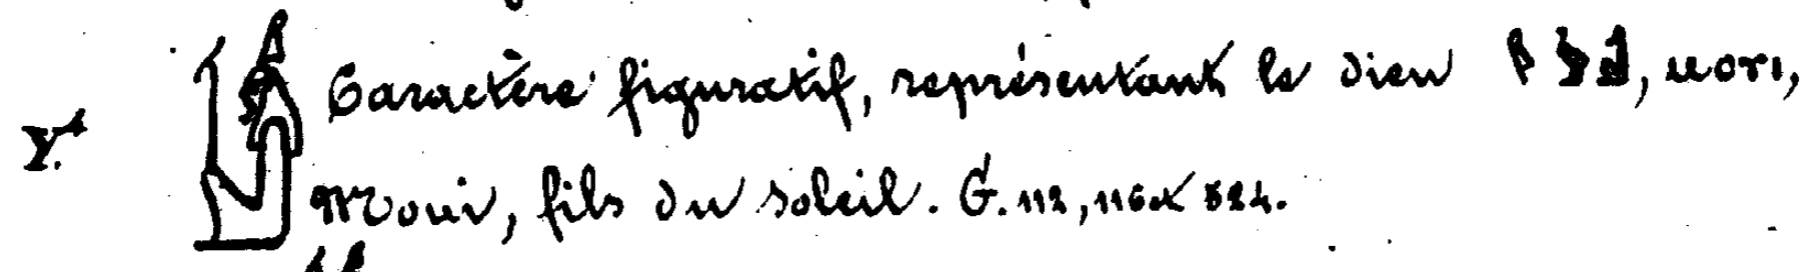 Caractère figuratif, représentant le dieu 𓆄𓅱𓀭, ⲙⲟⲩⲓ,
Moui, fils du soleil. G. 112, 116 et 324.